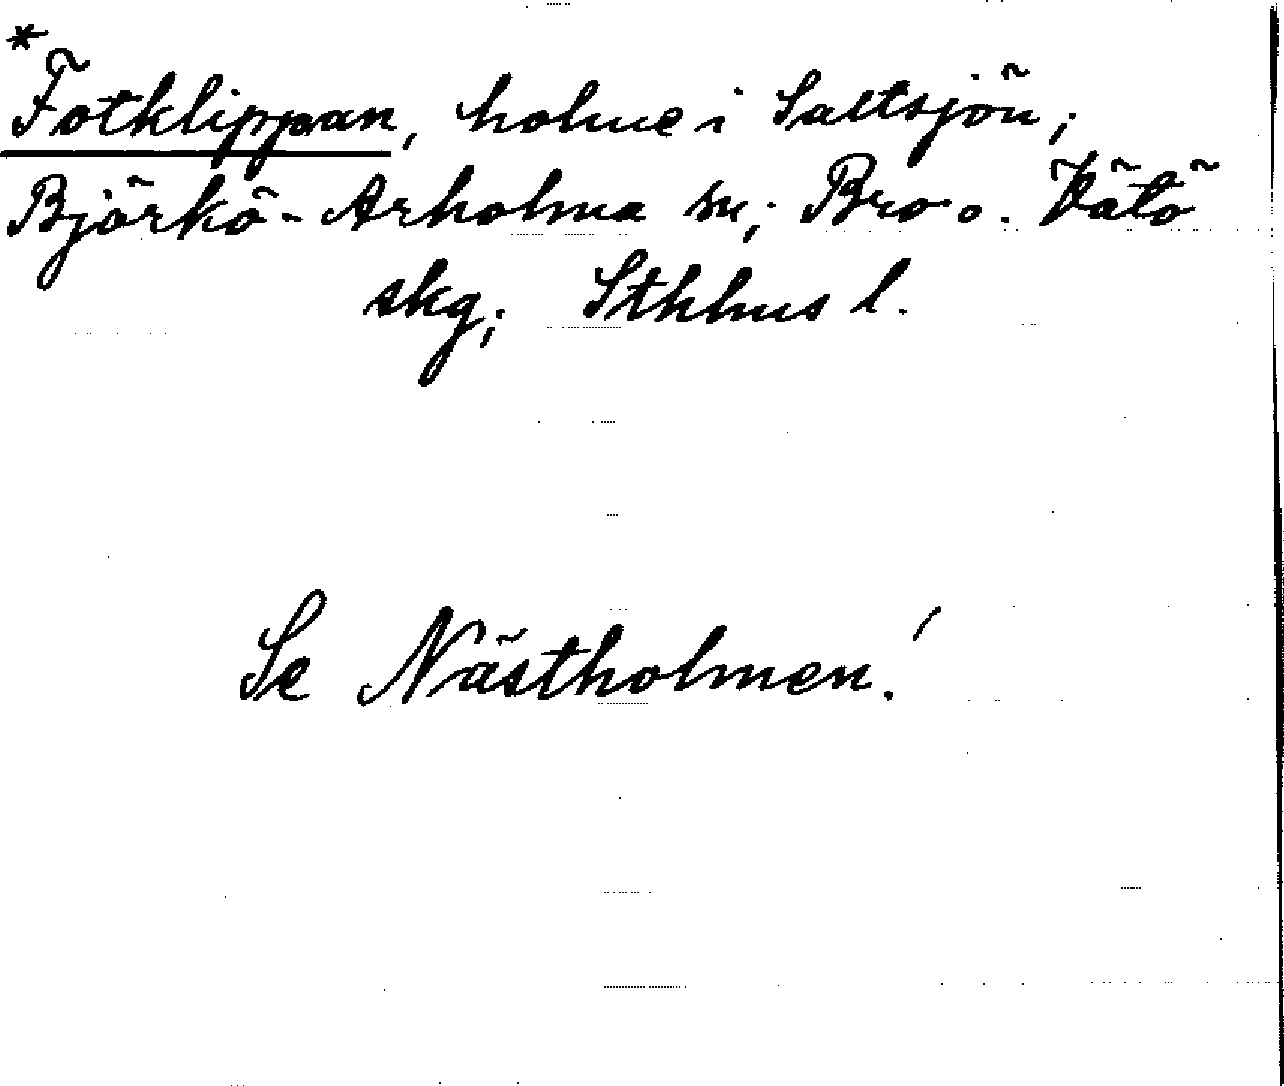 *
Fotklippan, holme i Saltsjön;
Björkö-Arholma sn; Bro o. Vätö
skg; Sthlms l.
Se Nästholmen!